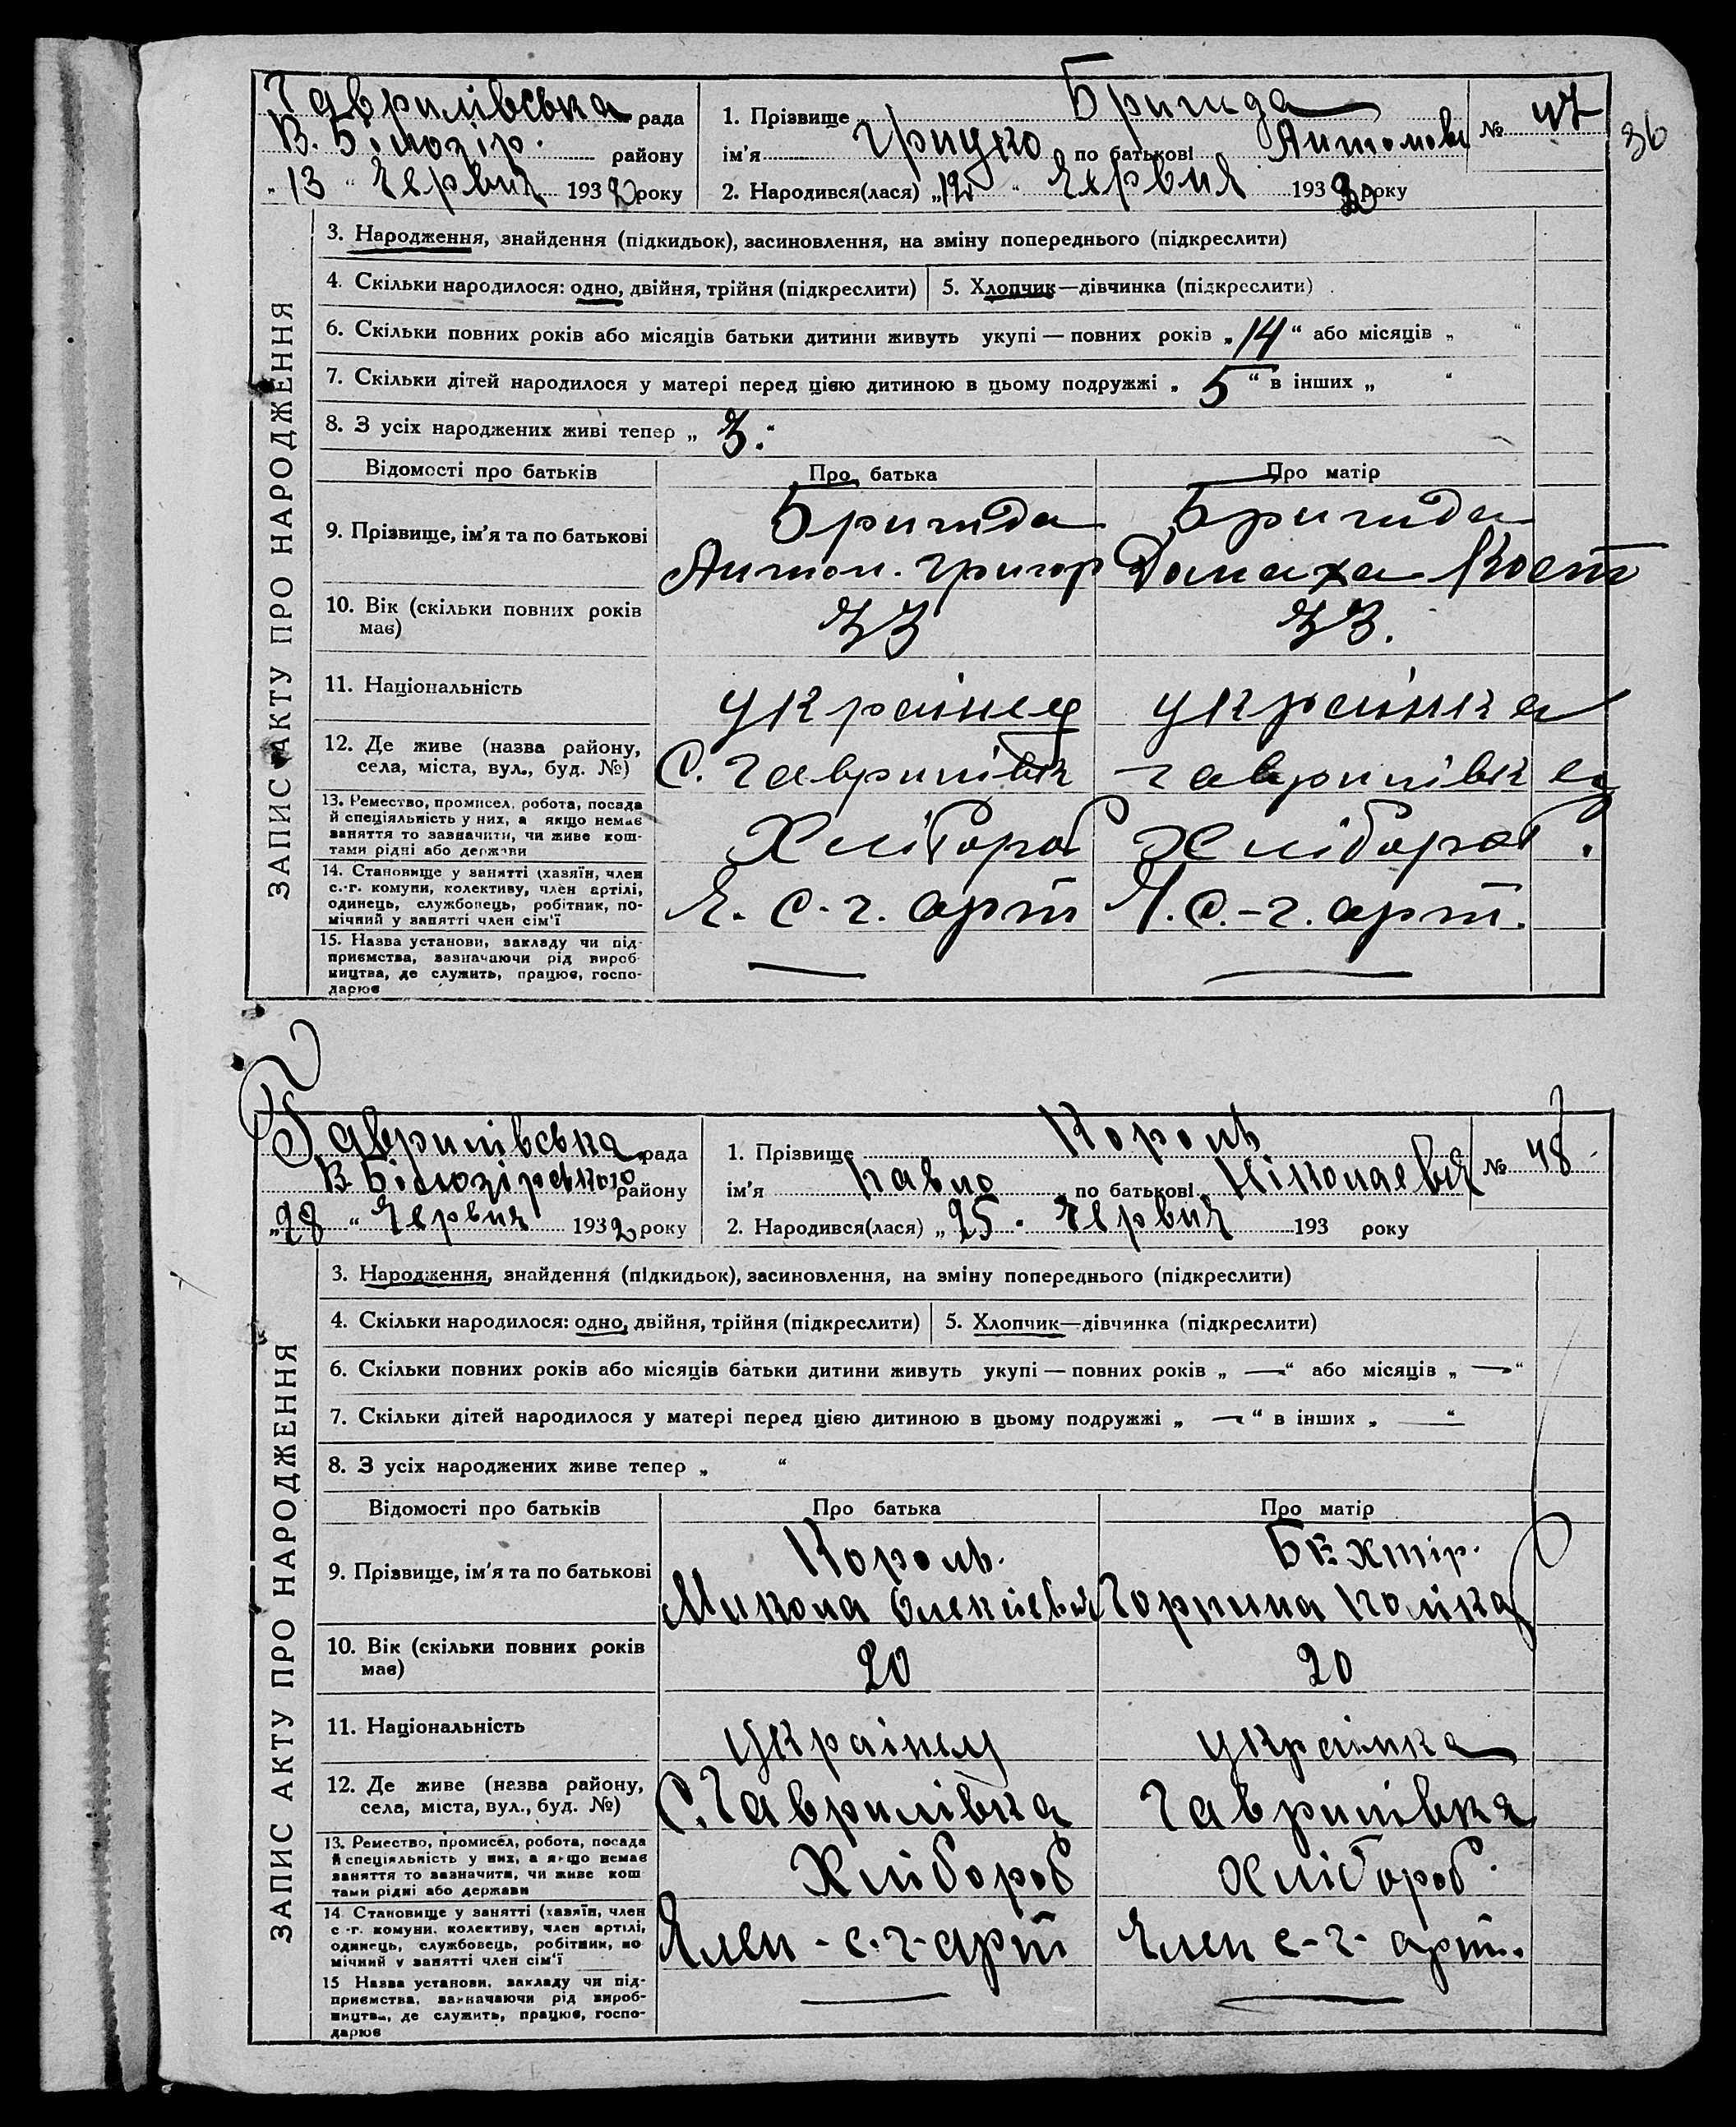 Гаврилівська рада
В. Білозір. району
„13“ Червня 1932 року
1. Прізвище Бригида
ім'я Грицько по батькові Антонов
№ 47
36
2. Народився(лася) „12“ Червня 1932 року
ЗАПИС АКТУ ПРО НАРОДЖЕННЯ
3. Народження, знайдення (підкидьок), засиновлення, на зміну попереднього (підкреслити)
4. Скільки народилося: одно, двійня, трійня (підкреслити)
5. Хлопчик—дівчинка (підкреслити)
6. Скільки повних років або місяців батьки дитини живуть укупі — повних років „14“ або місяців „ “
7. Скільки дітей народилося у матері перед цією дитиною в цьому подружжі „5“ в інших „ “
8. З усіх народжених живі тепер „3“
Відомості про батьків Про батька Про матір
9. Прізвище, ім'я та по батькові
Бригида Бригида
Антон. Григор Домаха Кост
10. Вік (скільки повних років має)
33 33.
11. Національність
українец українка
12. Де живе (назва району, села, міста, вул., буд. №)
С. Гаврилівк Гаврилівка
13. Ремество, промисел, робота, посада
й спеціяльність у них, а якщо немає
заняття то зазначити, чи живе кош-
тами рідні або держави
Хлібороб Хлібороб.
14. Становище у занятті (хазяїн, член
с.-г. комуни, колективу, член артілі,
одинець, службовець, робітник, по-
мічний у занятті член сім'ї
Ч. с.-г. арт Ч. с.-г. арт.
15. Назва установи, закладу чи під-
приємства, зазначаючи рід вироб-
ництва, де служить, працює, госпо-
дарює
Гаврилівська рада
В. Білозірського району
„28“ Червня 1932 року
1. Прізвище Король
ім'я Павло по батькові Ніколаевич
№ 48
2. Народився(лася) „25“ Червня 193 року
ЗАПИС АКТУ ПРО НАРОДЖЕННЯ
3. Народження, знайдення (підкидьок), засиновлення, на зміну попереднього (підкреслити)
4. Скільки народилося: одно, двійня, трійня (підкреслити)
5. Хлопчик—дівчинка (підкреслити)
6. Скільки повних років або місяців батьки дитини живуть укупі — повних років „—“ або місяців „—“
7. Скільки дітей народилося у матері перед цією дитиною в цьому подружжі „—“ в інших „—“
8. З усіх народжених живе тепер „ “
Відомості про батьків Про батька Про матір
9. Прізвище, ім'я та по батькові
Король. Бехтір.
Микола Олексієвич Горпина
10. Вік (скільки повних років має)
20 20
11. Національність
українец українка
12. Де живе (назва району, села, міста, вул., буд. №)
С. Гаврилівка Гаврилівка
13. Ремество, промисел, робота, посада
й спеціяльність у них, а якщо немає
заняття то зазначити, чи живе кош-
тами рідні або держави
Хлібороб Хлібороб.
14 Становище у занятті (хазяїн, член
с.-г. комуни, колективу, член артілі,
одинець, службовець, робітник, по-
мічний у занятті член сім'ї
Член-с.-г-арт Член с-г- арт.
15 Назва установи, закладу чи під-
приємства, зазначаючи рід вироб-
ництва, де служить, працює, госпо-
дарює